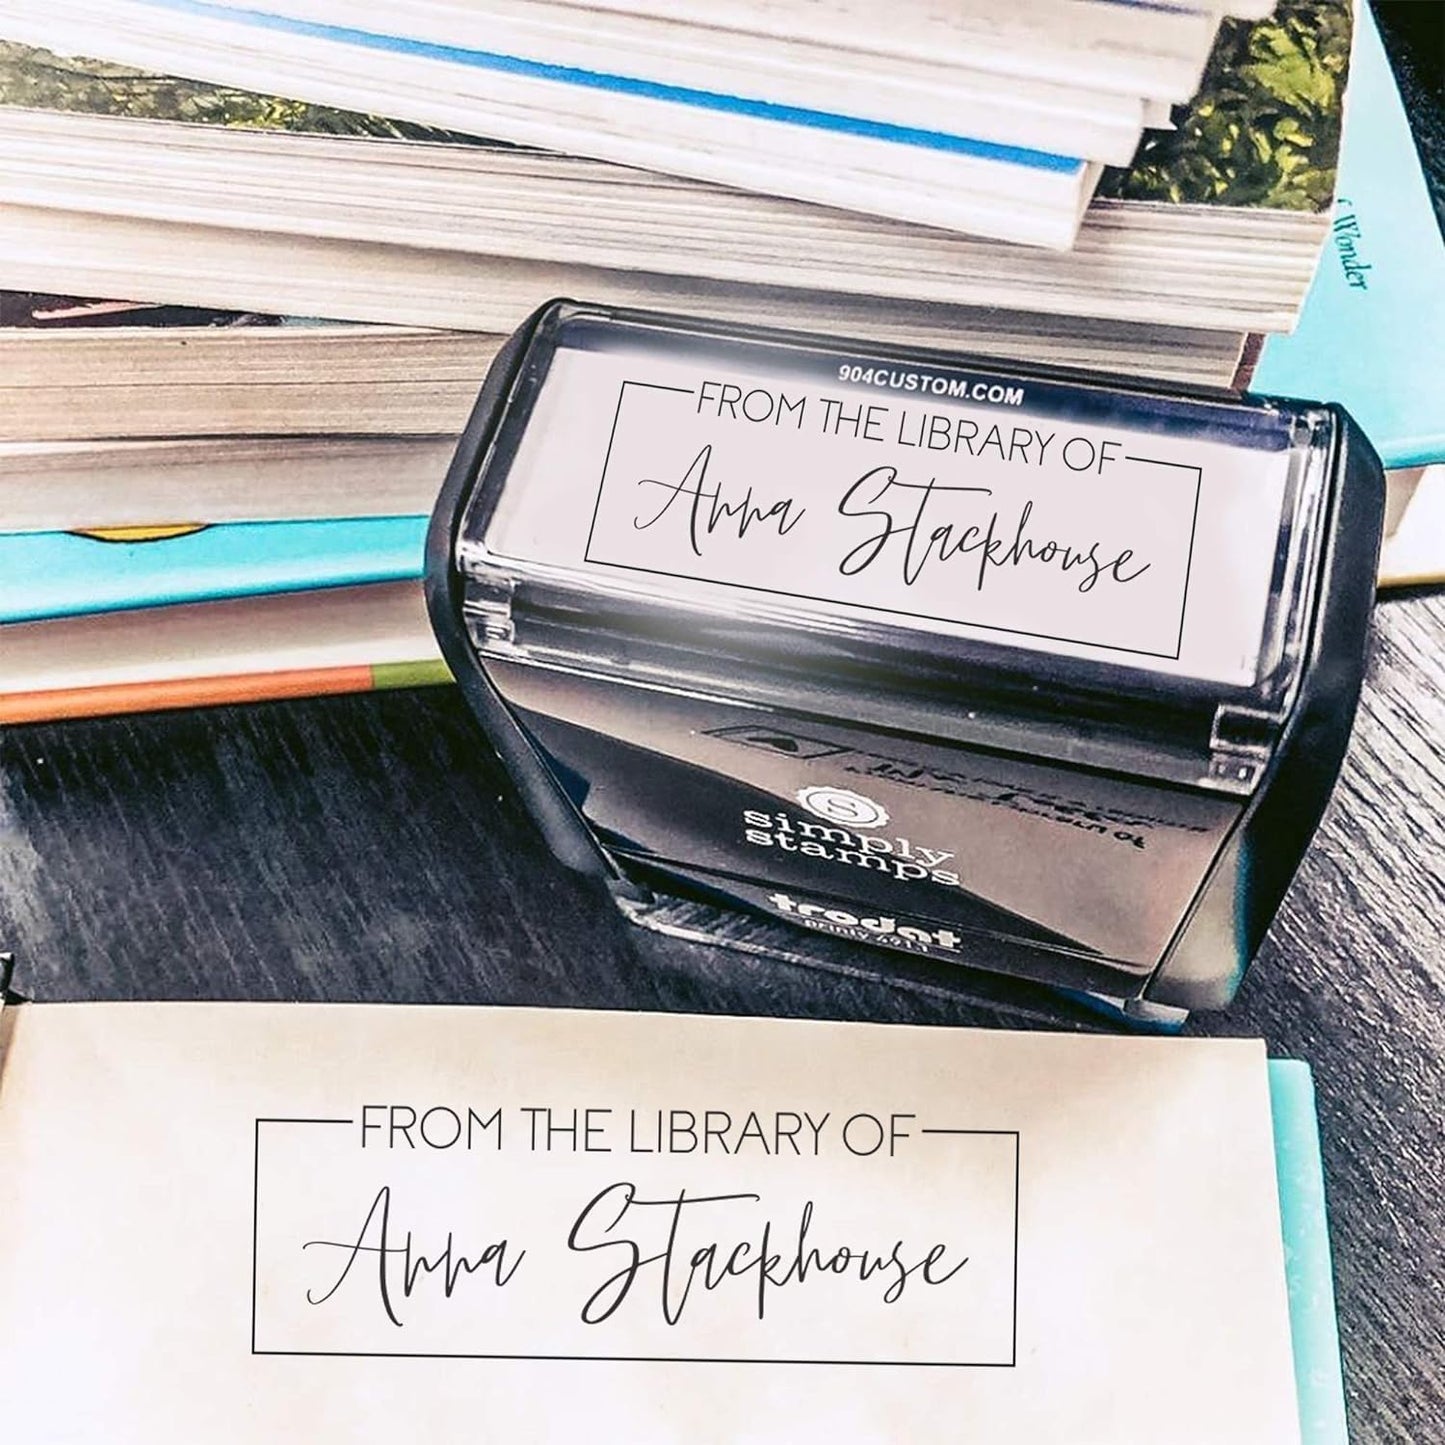 f Wonder
904CUSTOM.COM
FROM THE LIBRARY OF
Anna Stackhouse
S
simply
stamps
trodat
printy 4911
FROM THE LIBRARY OF
Anna Stackhouse